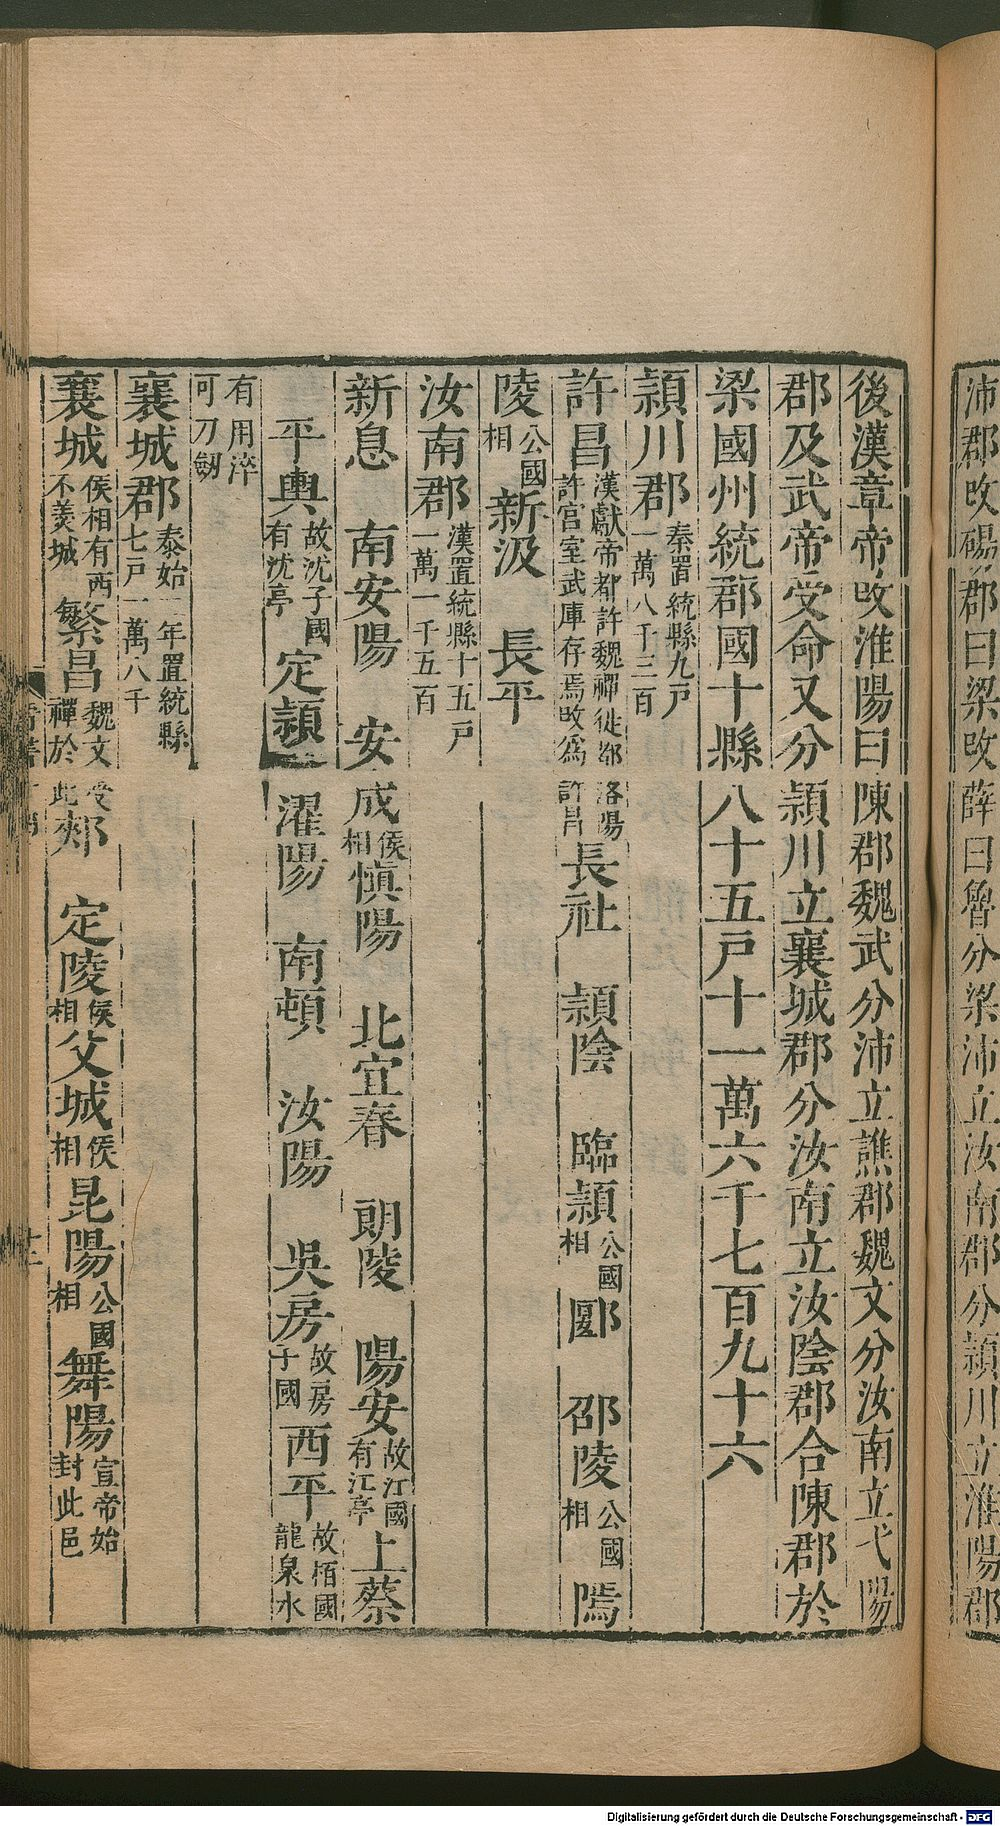 沛郡攺碭郡曰梁攺薛曰魯分梁沛立汝南郡分頴川立淮陽郡
後漢章帝攺淮陽曰陳郡魏武分沛立譙郡魏文分汝南立弋陽
郡及武帝受命又分頴川立襄城郡分汝南立汝陰郡合陳郡於
梁國州統郡國十縣八十五戸十一萬六千七百九十六
頴川郡秦置統縣九戸一萬八千三百
許昌漢獻帝都許魏禪徙都洛陽許宮室武庫存焉攺為許昌 長社 頴陰 臨頴公國相 郾 邵陵公國相
陵公國相 新汲 長平
汝南郡漢置統縣十五戸一萬一千五百
新息 南安陽 安成侯相 慎陽 北宜春 朗陵 陽安故江國有江亭 上蔡
平輿故沈子國有沈亭 定頴 濯陽 南頓 汝陽 吳房故房子國 西平故栢國龍泉水
有用淬可刀劒
襄城郡泰始二年置統縣七戸一萬八千
襄城侯相有西不羹城 繁昌魏文受禪於此 郟 定陵侯相 父城侯相 昆陽公國相 舞陽宣帝始封此邑
Digitalisierung gefördert durch die Deutsche Forschungsgemeinschaft - DFG